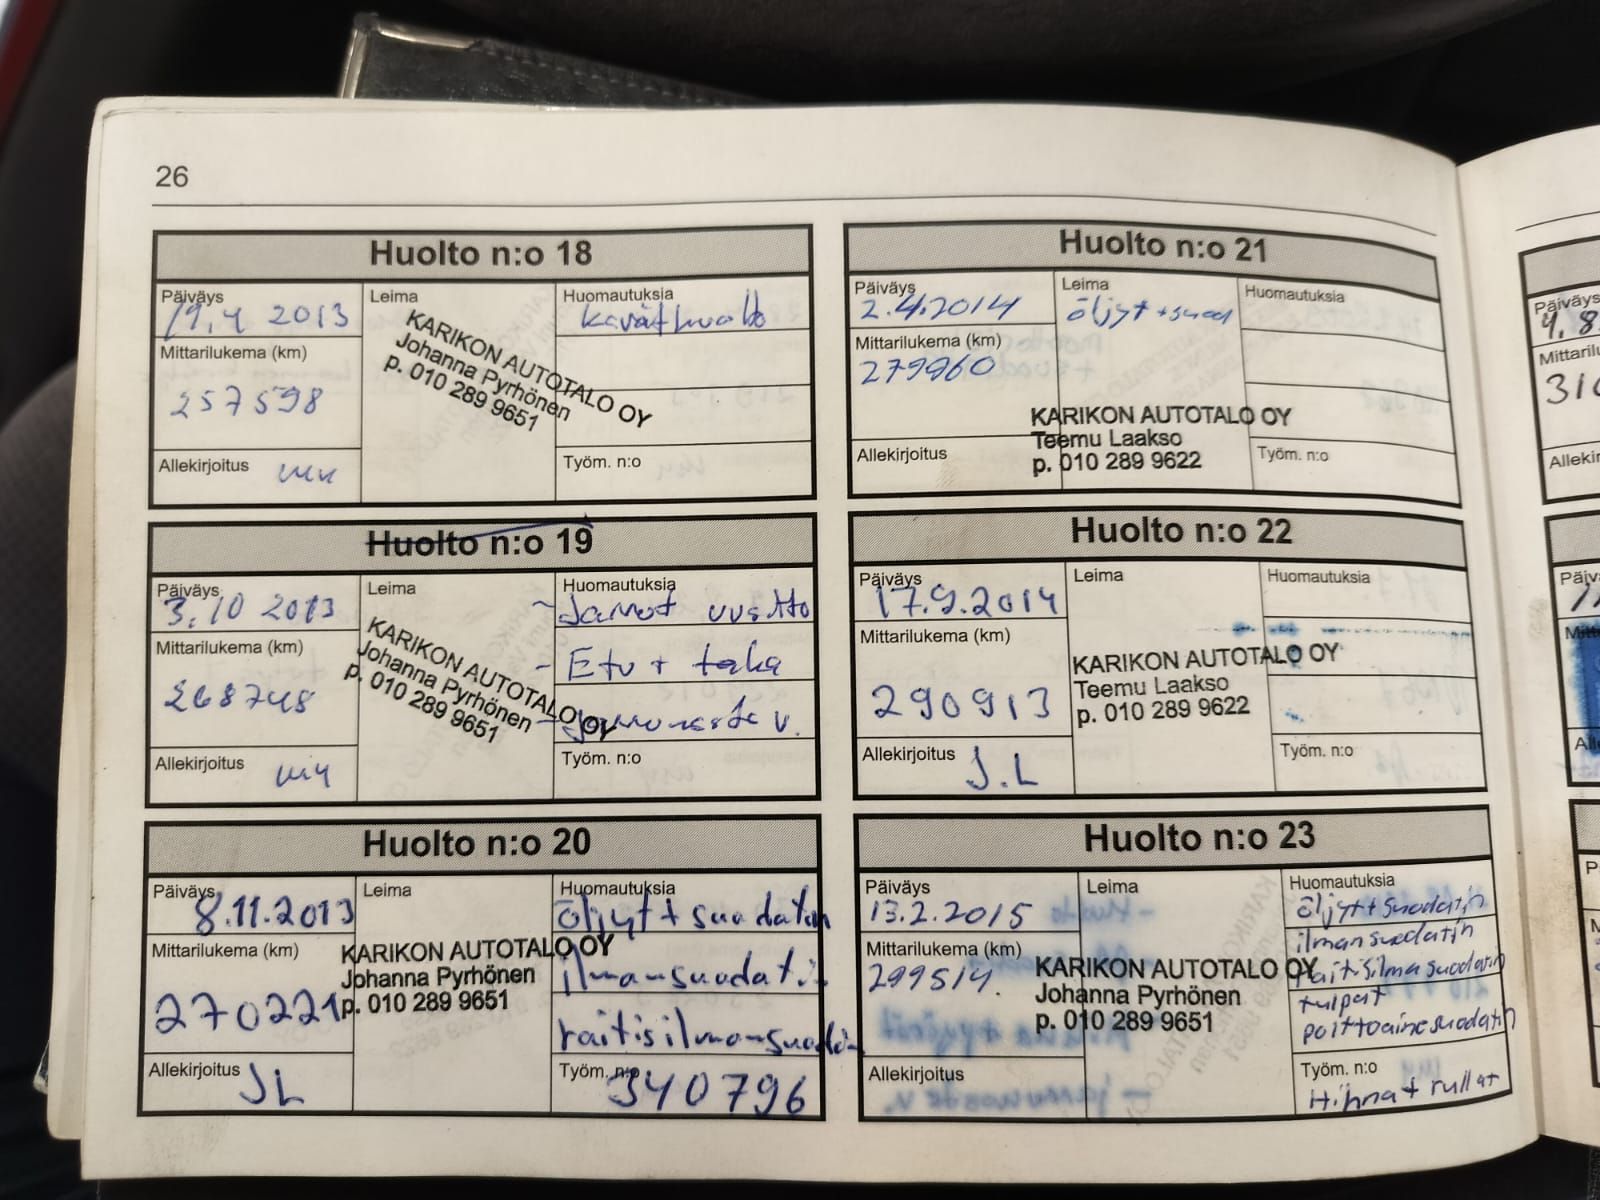 26
Huolto n:o 18
Päiväys
19.4 2013
Leima
Huomautuksia
Mittarilukema (km)
257598
KARIKON AUTOTALO OY
Johanna Pyrhönen
p. 010 289 9651
Allekirjoitus
Työm. n:o
Huolto n:o 19
Päiväys
3.10 2013
Leima
Huomautuksia
- Jarrut uusittu
- Etu + taka
- Jarruneste v.
Mittarilukema (km)
268748
KARIKON AUTOTALO OY
Johanna Pyrhönen
p. 010 289 9651
Allekirjoitus
Työm. n:o
Huolto n:o 20
Päiväys
8.11.2013
Leima
Huomautuksia
öljyt + suodatin
ilmansuodatin
raitisilmansuodatin
Mittarilukema (km)
270221
KARIKON AUTOTALO OY
Johanna Pyrhönen
p. 010 289 9651
Allekirjoitus
JL
Työm. n:o
340796
Huolto n:o 21
Päiväys
2.4.2014
Leima
öljyt + suod
Huomautuksia
Mittarilukema (km)
279960
KARIKON AUTOTALO OY
Teemu Laakso
p. 010 289 9622
Allekirjoitus
Työm. n:o
Huolto n:o 22
Päiväys
17.9.2014
Leima
Huomautuksia
Mittarilukema (km)
290913
KARIKON AUTOTALO OY
Teemu Laakso
p. 010 289 9622
Allekirjoitus
J.L
Työm. n:o
Huolto n:o 23
Päiväys
13.2.2015
Leima
Huomautuksia
öljyt + suodatin
ilmansuodatin
raitisilmasuodatin
tulpat
polttoainesuodatin
Mittarilukema (km)
299514.
KARIKON AUTOTALO OY
Johanna Pyrhönen
p. 010 289 9651
Allekirjoitus
Työm. n:o
Hihna + rullat
Päiväys
4.8
Mittarilu
310
Allekir